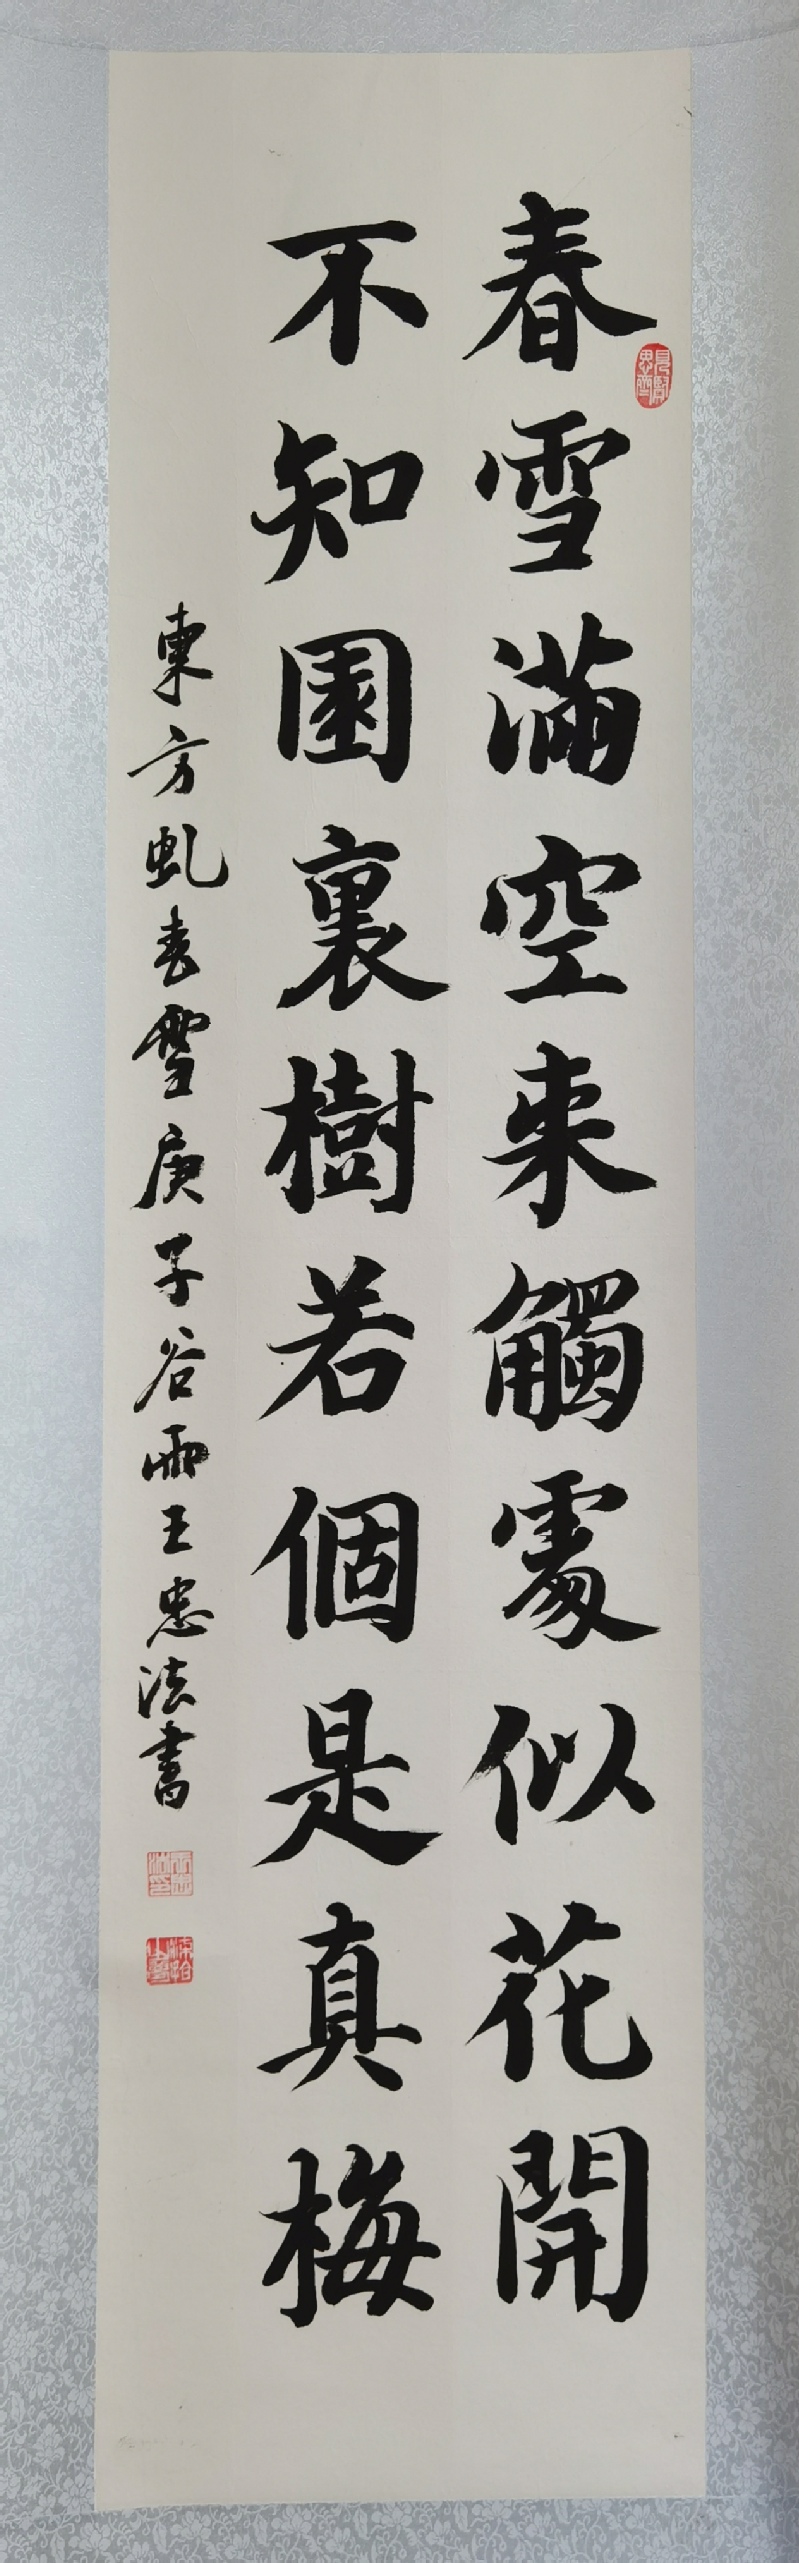 春雪滿空来觸處似花開
不知園裏樹若個是真梅
東方虬春雪庚子谷雨王忠法書
見賢思齊